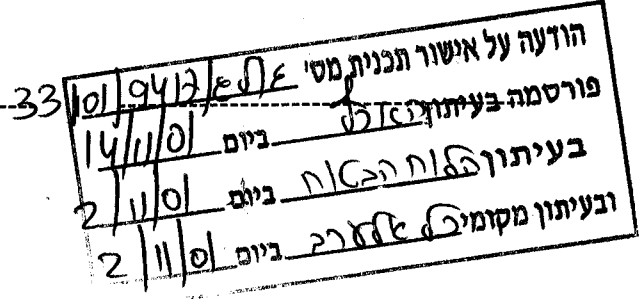 הודעה על אישור תכנית מס' 33/101/9417/
פורסמה בעיתון הארץ ביום 14/11/01
בעיתון הלוח הבטוח ביום 2/11/01
ובעיתון מקומי כל אלערב ביום 2/11/01